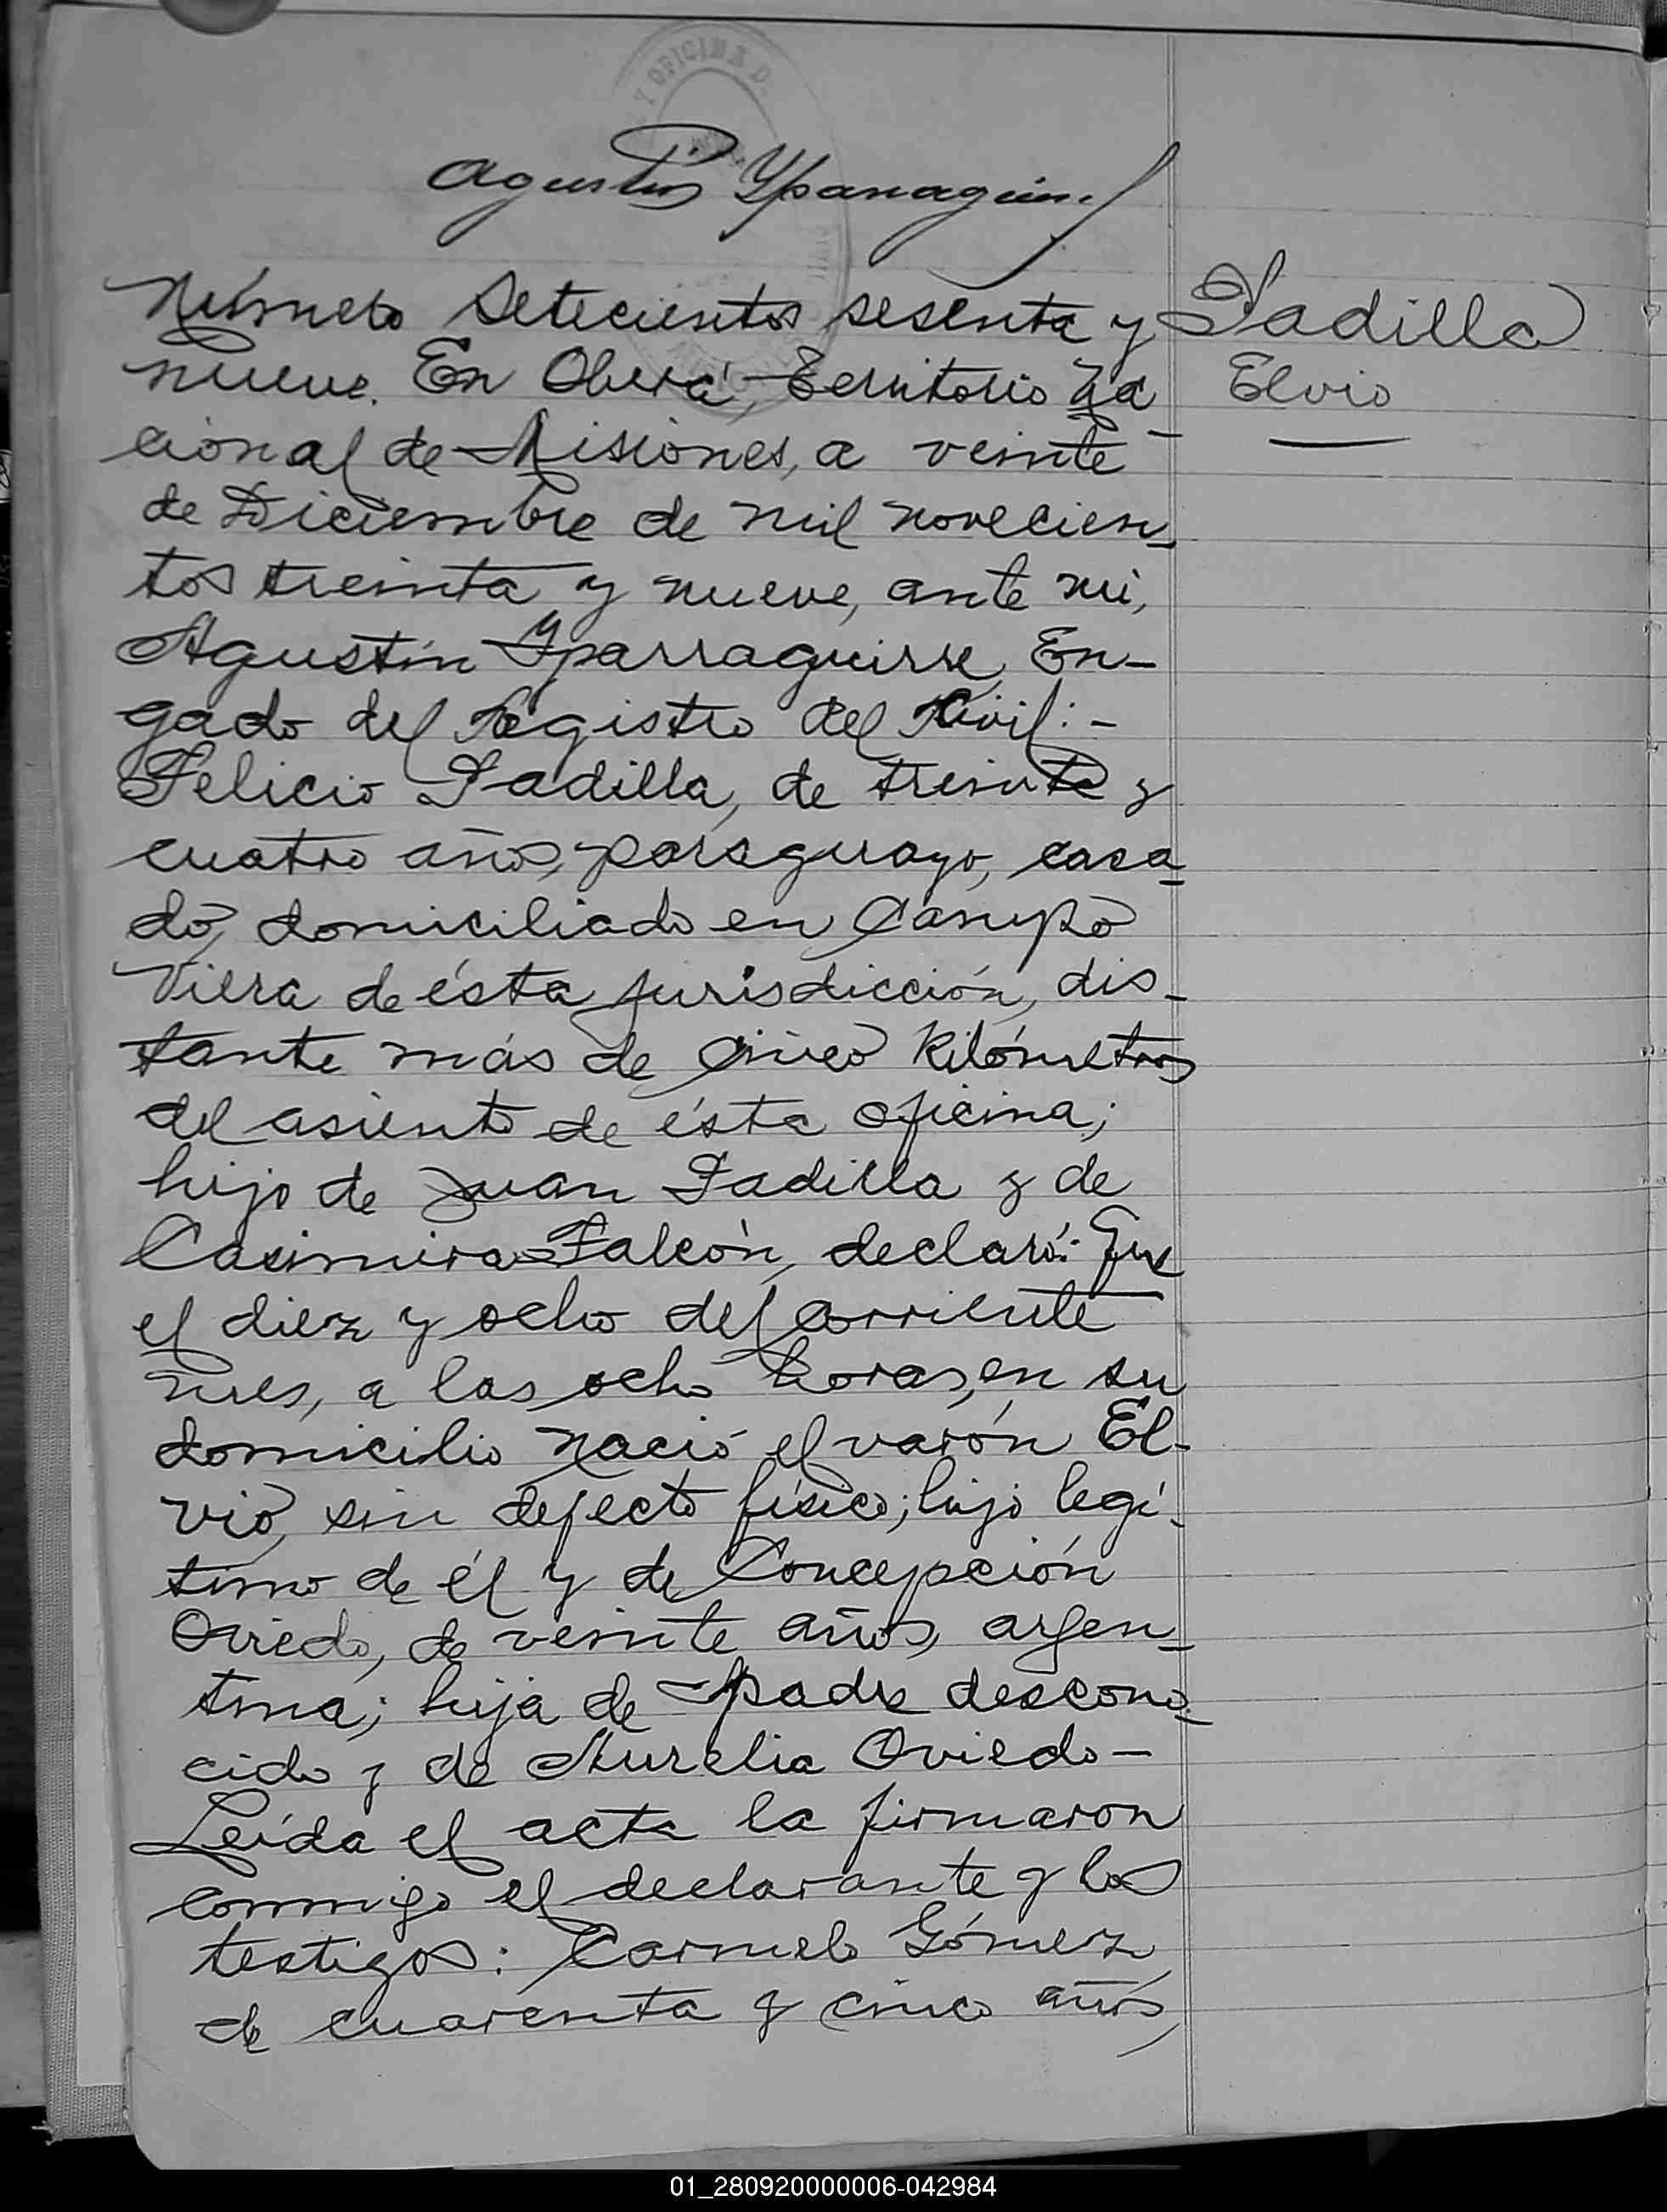 Y OFICINA D
Agustin Yparraguirre
Número Setecientos sesenta y
nueve. En Oberá, Territorio Na
cional de Misiones, a veinte
de Diciembre de mil novecien-
tos treinta y nueve, ante mi,
Agustín Yparraguirre, En-
gado del Registro del Civil:-
Felicio Padilla, de treinta y
cuatro años, paraguayo, casa-
do, domiciliado en Campo
Viera de ésta jurisdicción, dis-
tante más de cinco Kilómetros
del asiento de ésta oficina;
hijo de Juan Padilla y de
Casimira Falcón, declaró: Que
el diez y ocho del corriente
mes, a las ocho horas, en su
domicilio nació el varón El-
vio, sin defecto físico; hijo legí-
timo de él y de Concepción
Oviedo, de veinte años, argen-
tina; hija de padre descono-
cido y de Aurelia Oviedo-
Leída el acta la firmaron
conmigo el declarante y los
testigos: Carmelo Gómez
de cuarenta y cinco años,
Padilla
Elvio
01_280920000006-042984